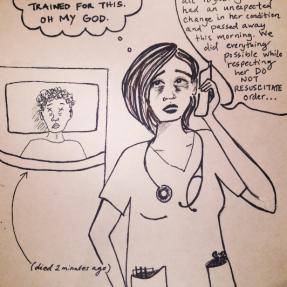 TRAINED FOR THIS.
OH MY GOD.
had an unexpected
change in her condition
and passed away
this morning. We
did everything
possible while
respecting
her DO
NOT
RESUSCITATE
order...
(died 2 minutes ago)